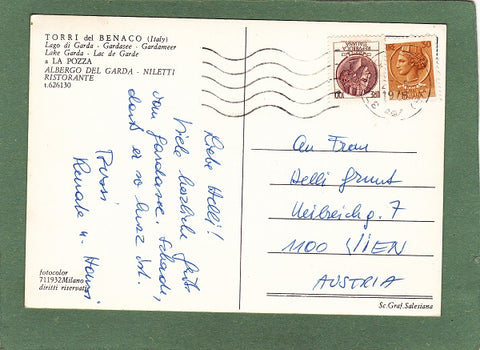 TORRI del BENACO (Italy)
Lago di Garda - Gardasee - Gardameer
Lake Garda - Lac de Garde
a LA POZZA
ALBERGO DEL GARDA - NILETTI
RISTORANTE
t.626130
Liebe Helli!
Viele herzliche Grüße
vom Gardasee. Schade,
daß es so kurz ist.
Bussi
Renate u. Hansi
fotocolor
711932 Milano
diritti riservati
1978
An Frau
Helli Grunt
Neilreichg. 7
1100 WIEN
AUSTRIA
Sc. Graf. Salesiana